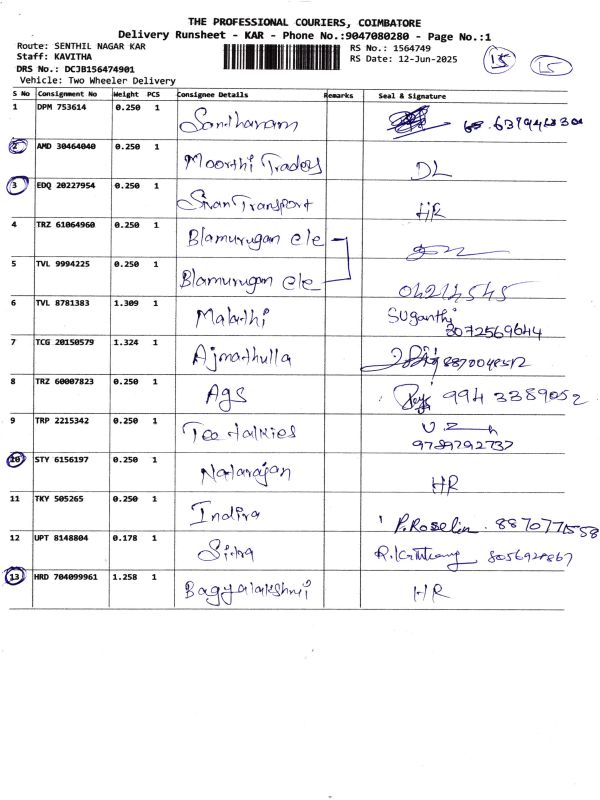 THE PROFESSIONAL COURIERS, COIMBATORE
Delivery Runsheet - KAR - Phone No.:9047080280 - Page No.:1
Route: SENTHIL NAGAR KAR RS No.: 1564749 15 15
Staff: KAVITHA RS Date: 12-Jun-2025
DRS No.: DCJB156474901
Vehicle: Two Wheeler Delivery
S No Consignment No Weight PCS Consignee Details Remarks Seal & Signature
1 DPM 753614 0.250 1 Santharam
2 AMD 30464040 0.250 1 Moorthi Traders DL
3 EDQ 20227954 0.250 1 Sivan Transport HR
4 TRZ 61064960 0.250 1 Blamurugan ele
5 TVL 9994225 0.250 1 Blamurugan ele
6 TVL 8781383 1.309 1 Malathi Suganthi
8072569644
7 TCG 20150579 1.324 1 Ajmathulla
8 TRZ 60007823 0.250 1 AGS 9943389052
9 TRP 2215342 0.250 1 Tee talkies
9789792737
10 STY 6156197 0.250 1 Natarajan HR
11 TKY 505265 0.250 1 Indira P. Roselin. 8870771558
12 UPT 8148804 0.178 1 8056928867
13 HRD 704099961 1.258 1 Bagyalakshmi HR